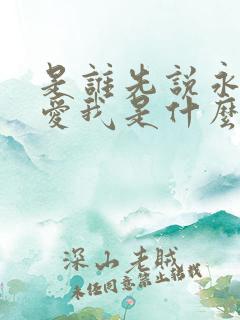 是誰先說永
愛我是什麼
深山老賊
未經同意禁止轉載